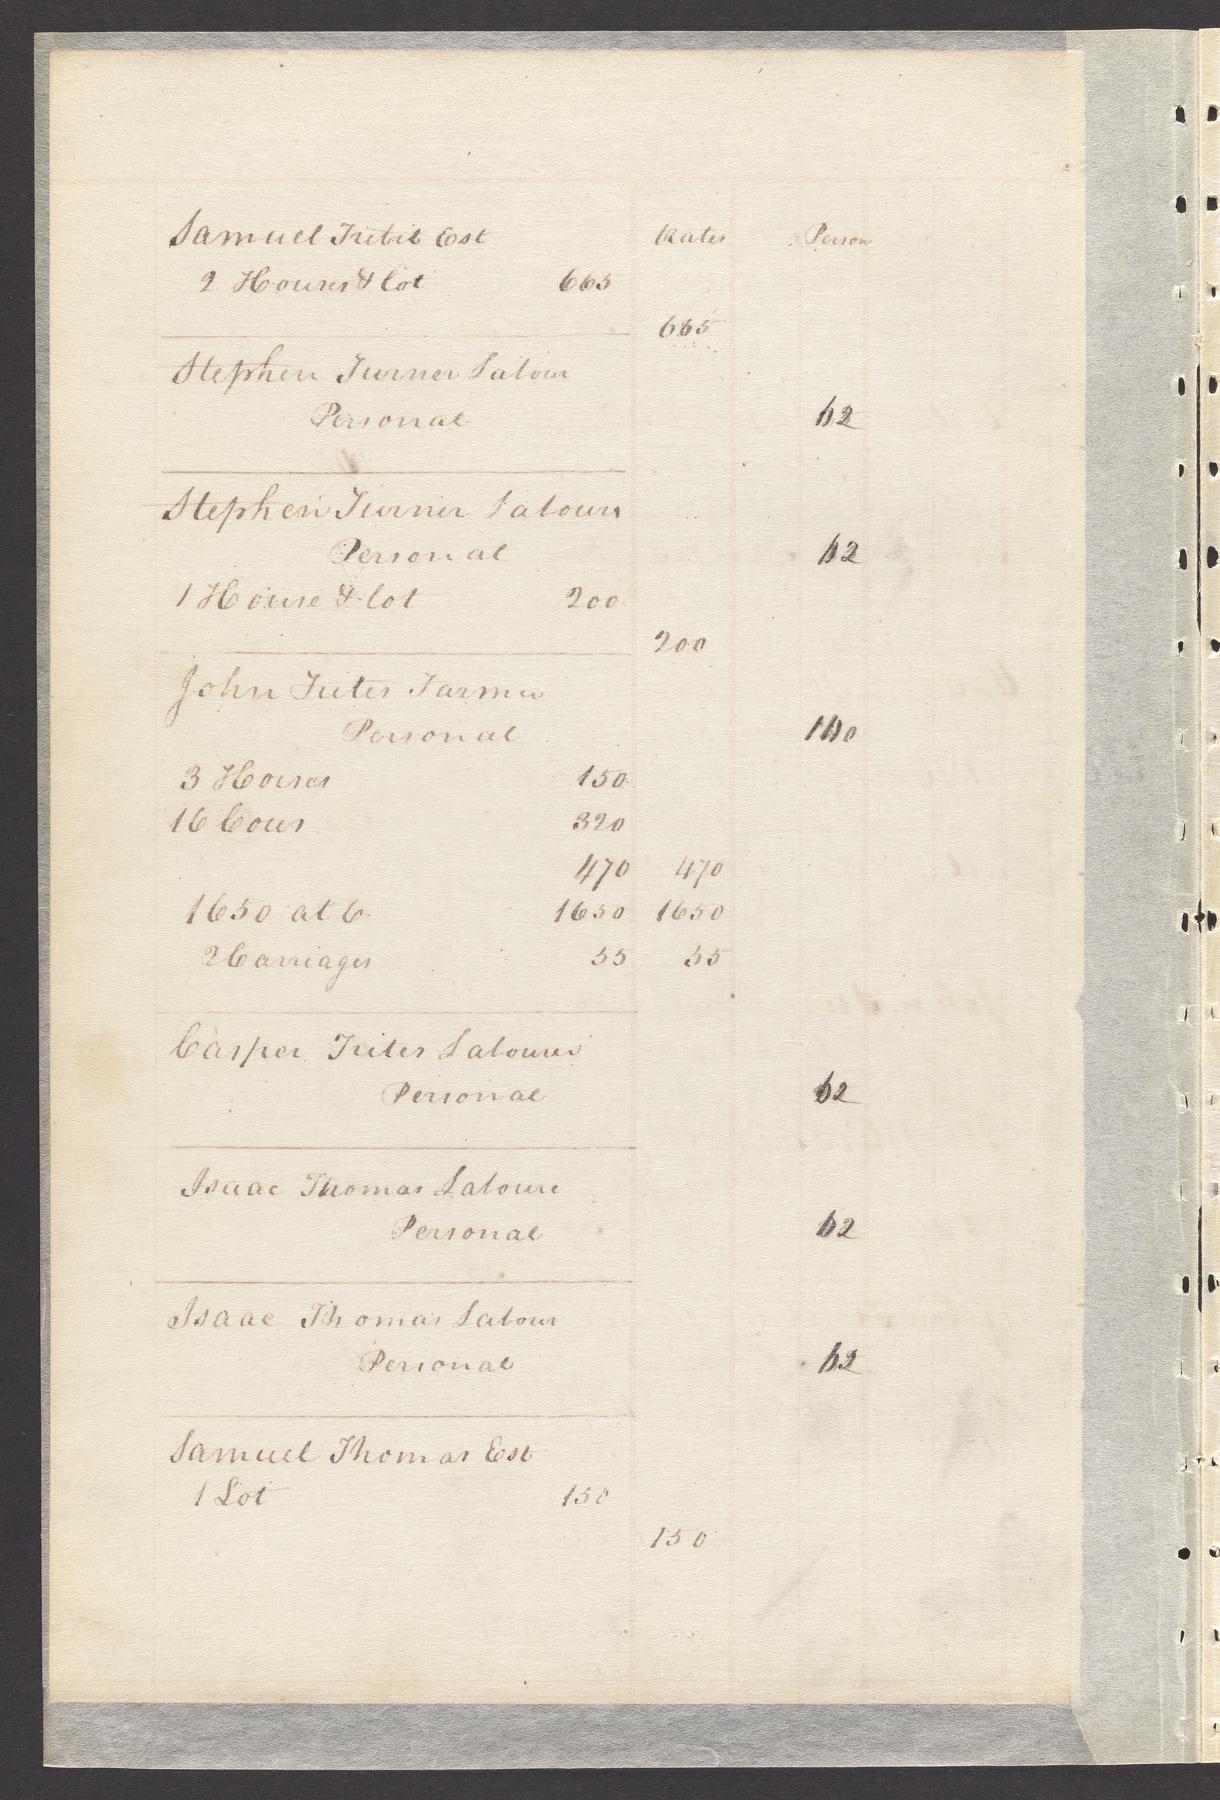 Samuel Tritit Est Rates Person
2 Houses & lot 665
665
Stephen Turner Labour
Personal 62
Stephen Turner Labour
Personal 62
1 House & lot 200
200
John Trites Farmer
Personal 100
3 Horses 150
16 Cows 320
470 470
1650 at 6 1650 1650
2 Carriages 55 55
Casper Trites Labourer
Personal 62
Isaac Thomas Laboure
Personal 62
Isaac Thomas Labour
Personal 62
Samuel Thomas Est
1 Lot 150
150